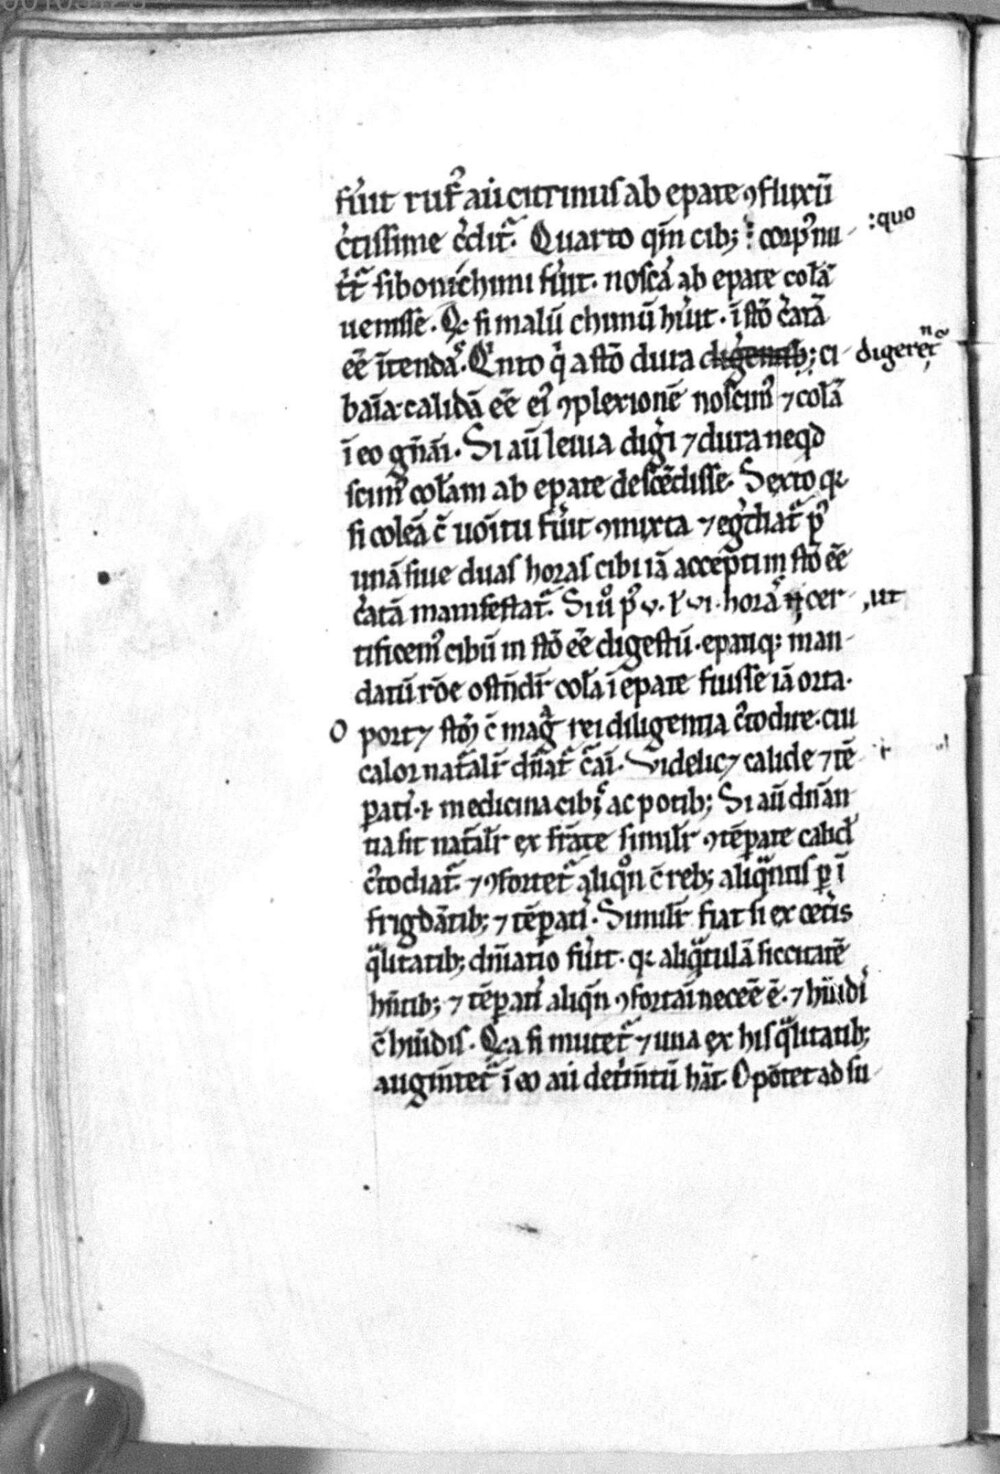 fuͥit ruf᷒ aū citrinus ab epate ꝯfluxū
c̾tissime c̾dit᷑. Quarto qm̄ cib; : corpͥ nu
si boni chimi fuͥit. nosca᷑ ab epate colā
uenisse. Q; si malū chimū huͥit. ī stō c̾atā
eē ītenda᷑. Qͥnto qͥ a stō dura ci
baīa calidā eē eiꝰ ꝯplexionē noscimꝰ ⁊ colā
ī eo gn̄ai. Si aū leuia digͥi ⁊ dura neqd
scimꝰ colam ab epate descēdisse. Sexto qꝛ
si coleā c̄ uoītu fuͥit ꝯmixta ⁊ egͥdiat᷑ pꝰ
unā siue duas horas cibi iā accepti in stō eē
c̾atā manifestat᷑. Si uͦ pꝰ v. ł vi. horā cer
tificemꝰ cibū in stō eē digestū. epatiq; man
datū rōe ostn̄dr̄ colā ī epate fuisse iā orta.
O portꝫ stōꝫ c̄ magͣ rei diligentia c̾todire. cui
calor nat̄alr̄ dn̄at᷑ c̄ai. Si delicꝫ calide ⁊ tē
ꝑati. medicina cibiſ ac potib; Si aū dn̄an
tia sit nat̄alr̄ ex frāte similr̄ ꝯtēꝑate calid
c̾todiat᷑. ⁊ ꝯfortet᷑ aliqn̄ c̄ reb; aliqͣntis ꝑ ī
frigdātib; ⁊ tēꝑati. Similr̄ fiat si ex cet̾is
qͣlitatib; dn̄atio fuͥit. qꝛ aliqͣtulā siccitatē
hn̄tib; ⁊ tēꝑati aliqn̄ ꝯfortaī neceē ē. ⁊ hūidi
c̄ hūidis. Qa si mutet᷑ ⁊ una ex his qͣlitatib;
augm̄tet᷑ ī eo aū det̾im̄tū hāt. Opōtet ad su
:quo
digeret᷑
,ut